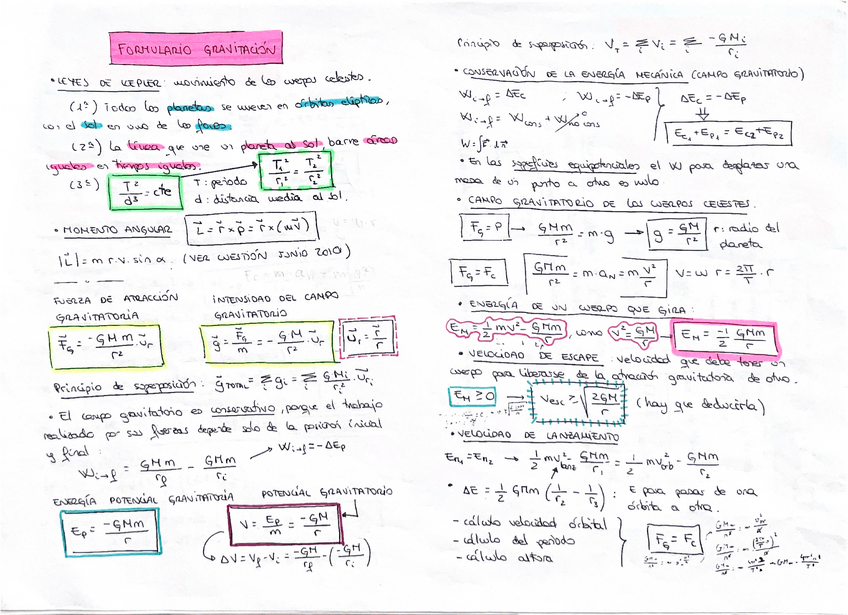 FORMULARIO GRAVITACIÓN
• LEYES DE KEPLER: movimiento de los cuerpos celestes.
(1ª) Todos los planetas se mueven en órbitas elípticas,
con el sol en uno de los focos.
(2ª) La línea que une un planeta al sol, barre áreas
iguales en tiempos iguales.
(3ª) T²/d³ = cte T: periodo T₁²/r₁² = T₂²/r₂²
d: distancia media al sol.
• MOMENTO ANGULAR L⃗ = r⃗ × p⃗ = r⃗ × (m v⃗)
|L⃗| = m r. v. sin α. (VER CUESTIÓN JUNIO 2010)
FUERZA DE ATRACCIÓN GRAVITATORIA
F⃗g = -GMm/r² · u⃗r
INTENSIDAD DEL CAMPO GRAVITATORIO
g⃗ = F⃗g/m = - GM/r² · u⃗r
u⃗r = r⃗/r
Principio de superposición: g⃗TOTAL = Σ g⃗i = Σ GMi/ri² · u⃗ri
• El campo gravitatorio es conservativo, porque el trabajo
realizado por sus fuerzas depende solo de la posición inicial
y final:
Wi→f = GMm/rf - GMm/ri → Wi→f = -ΔEp
ENERGÍA POTENCIAL GRAVITATORIA
Ep = -GMm/r
POTENCIAL GRAVITATORIO
V = Ep/m = -GM/r
ΔV = Vf - Vi = -GM/rf - (-GM/ri)
Principio de superposición: VT = Σ Vi = Σ -GMi/ri
• CONSERVACIÓN DE LA ENERGÍA MECÁNICA (CAMPO GRAVITATORIO)
Wi→f = ΔEc ; Wi→f = -ΔEp ΔEc = -ΔEp
Wi→f = Wcons + Wno cons ⇓ Ec1 + Ep1 = Ec2 + Ep2
• En las superficies equipotenciales el W para desplazar una
masa de un punto a otro es nulo.
• CAMPO GRAVITATORIO DE LOS CUERPOS CELESTES.
Fg = P → GMm/r² = m·g → g = GM/r² r: radio del planeta
Fg = Fc GMm/r² = m·aN = m v²/r V = ω r = 2π/T · r
• ENERGÍA DE UN CUERPO QUE GIRA:
EM = 1/2 mv² - GMm/r, como v² = GM/r : EM = -1/2 GMm/r
• VELOCIDAD DE ESCAPE: velocidad que debe tener un
cuerpo para liberarse de la atracción gravitatoria de otro.
EM ≥ 0 → Vesc ≥ √2GM/r (hay que deducirla)
• VELOCIDAD DE LANZAMIENTO
Em1 = Em2 → 1/2 mv²lanz - GMm/r₁ = 1/2 mv²orb - GMm/r₂
• ΔE = 1/2 GMm (1/r₂ - 1/r₃) : E para pasar de una
órbita a otra.
- cálculo velocidad órbital
- cálculo del periodo
- cálculo altura
Fg = Fc